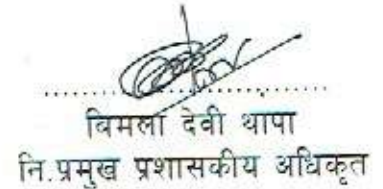 बिमला देवी थापा
नि.प्रमुख प्रशासकीय अधिकृत